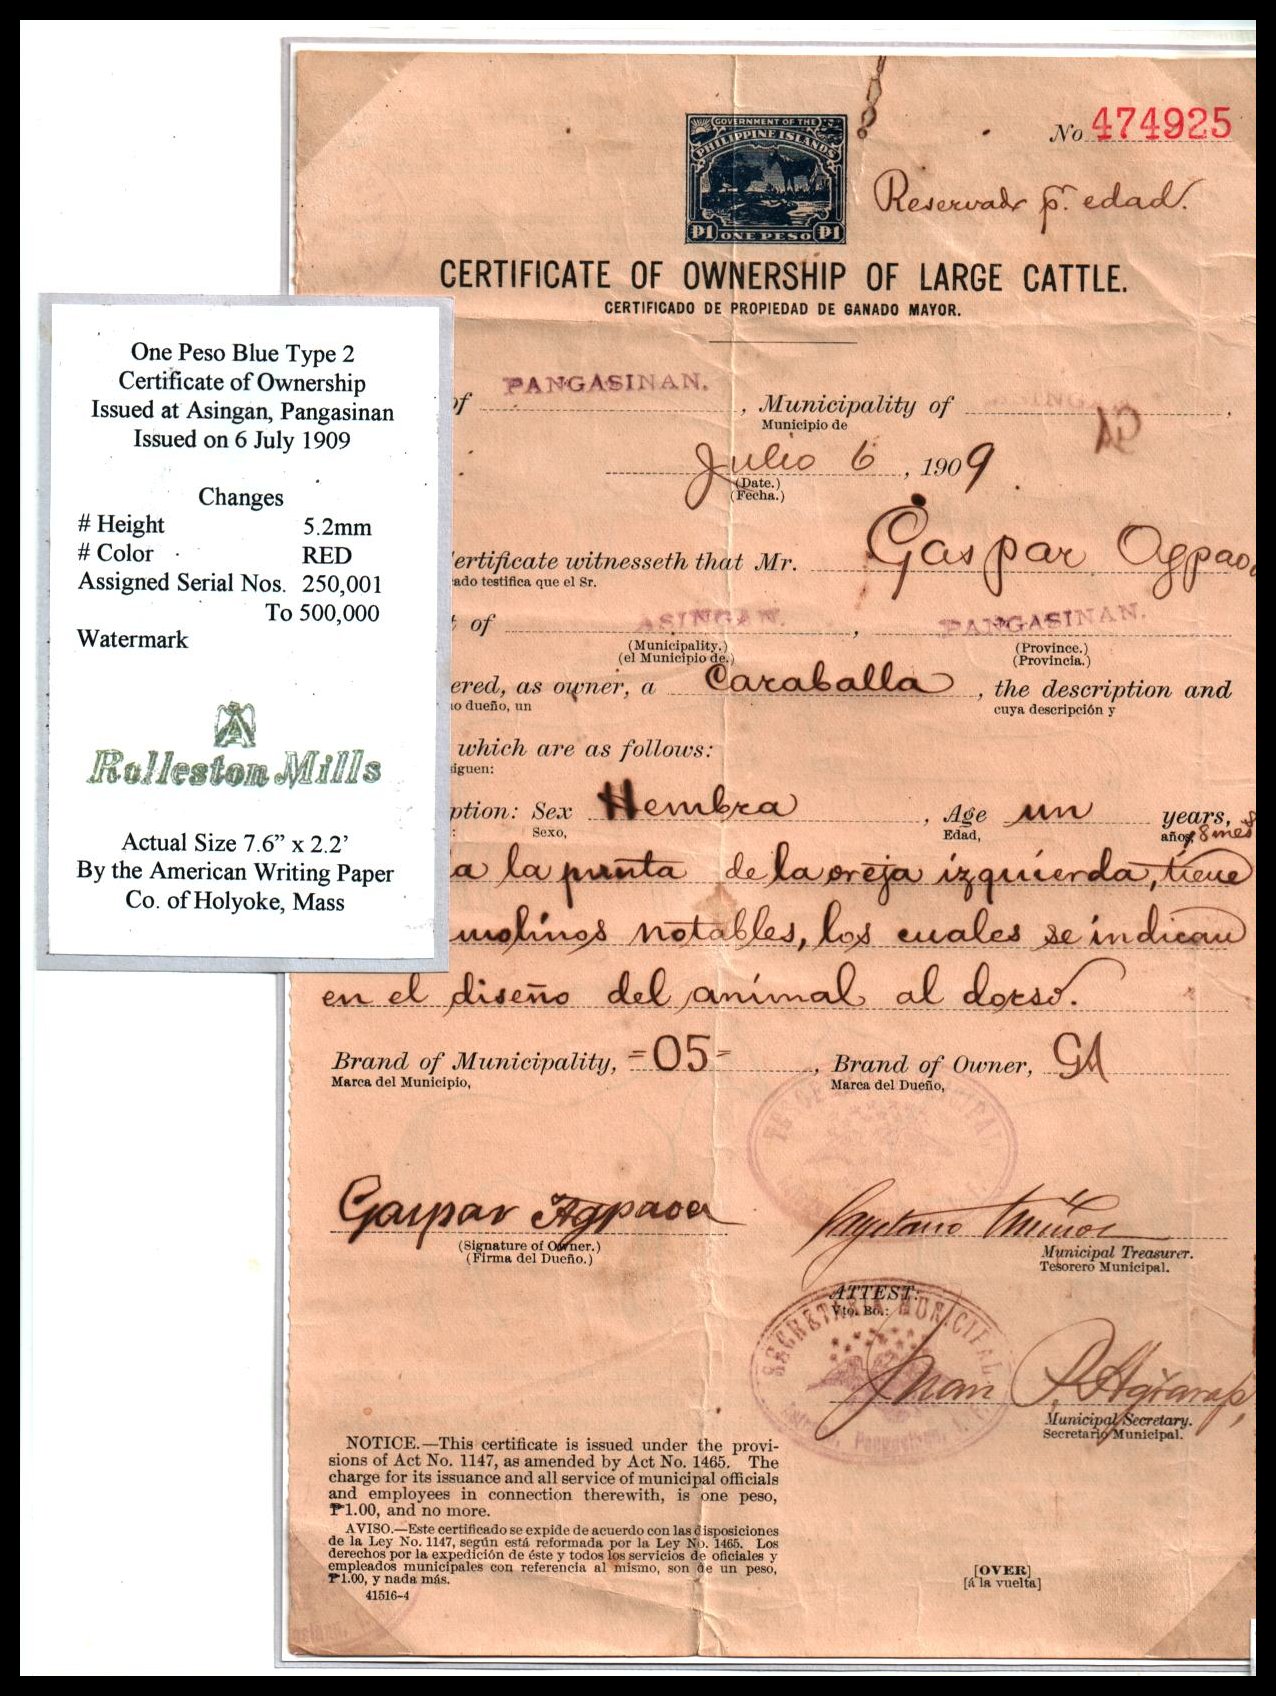 GOVERNMENT OF THE
PHILIPPINE ISLANDS
₱1 ONE PESO ₱1
No 474925
Reservado p. edad.
CERTIFICATE OF OWNERSHIP OF LARGE CATTLE.
CERTIFICADO DE PROPIEDAD DE GANADO MAYOR.
One Peso Blue Type 2
Certificate of Ownership
Issued at Asingan, Pangasinan
Issued on 6 July 1909
Changes
# Height 5.2mm
# Color RED
Assigned Serial Nos. 250,001
To 500,000
Watermark
Rolleston Mills
Actual Size 7.6” x 2.2’
By the American Writing Paper
Co. of Holyoke, Mass
of PANGASINAN. , Municipality of ASINGAN ,
Municipio de
GA
Julio 6 , 1909
(Date.)
(Fecha.)
ertificate witnesseth that Mr. Gaspar Agpaoa
ado testifica que el Sr.
of ASINGAN. , PANGASINAN.
(Municipality.) (Province.)
(el Municipio de.) (Provincia.)
ered, as owner, a Caraballa , the description and
o dueño, un cuya descripción y
which are as follows:
siguen:
ption: Sex Hembra , Age un years, 8 mes
Sexo, Edad, años,
a la punta de la oreja izquierda, tiene
molinos notables, los cuales se indican
en el diseño del animal al dorso.
Brand of Municipality, =05= , Brand of Owner, GA
Marca del Municipio, Marca del Dueño,
Gaspar Agpaoa
(Signature of Owner.)
(Firma del Dueño.)
Cayetano Muñoz
Municipal Treasurer.
Tesorero Municipal.
ATTEST:
Vto. Bo.:
SECRETARIA MUNICIPAL
Pangasinan, I. F.
Juan P. Agsarap,
Municipal Secretary.
Secretario Municipal.
NOTICE.—This certificate is issued under the provi-
sions of Act No. 1147, as amended by Act No. 1465. The
charge for its issuance and all service of municipal officials
and employees in connection therewith, is one peso,
₱1.00, and no more.
AVISO.—Este certificado se expide de acuerdo con las disposiciones
de la Ley No. 1147, según está reformada por la Ley No. 1465. Los
derechos por la expedición de éste y todos los servicios de oficiales y
empleados municipales con referencia al mismo, son de un peso,
₱1.00, y nada más.
41516-4
[OVER]
[á la vuelta]